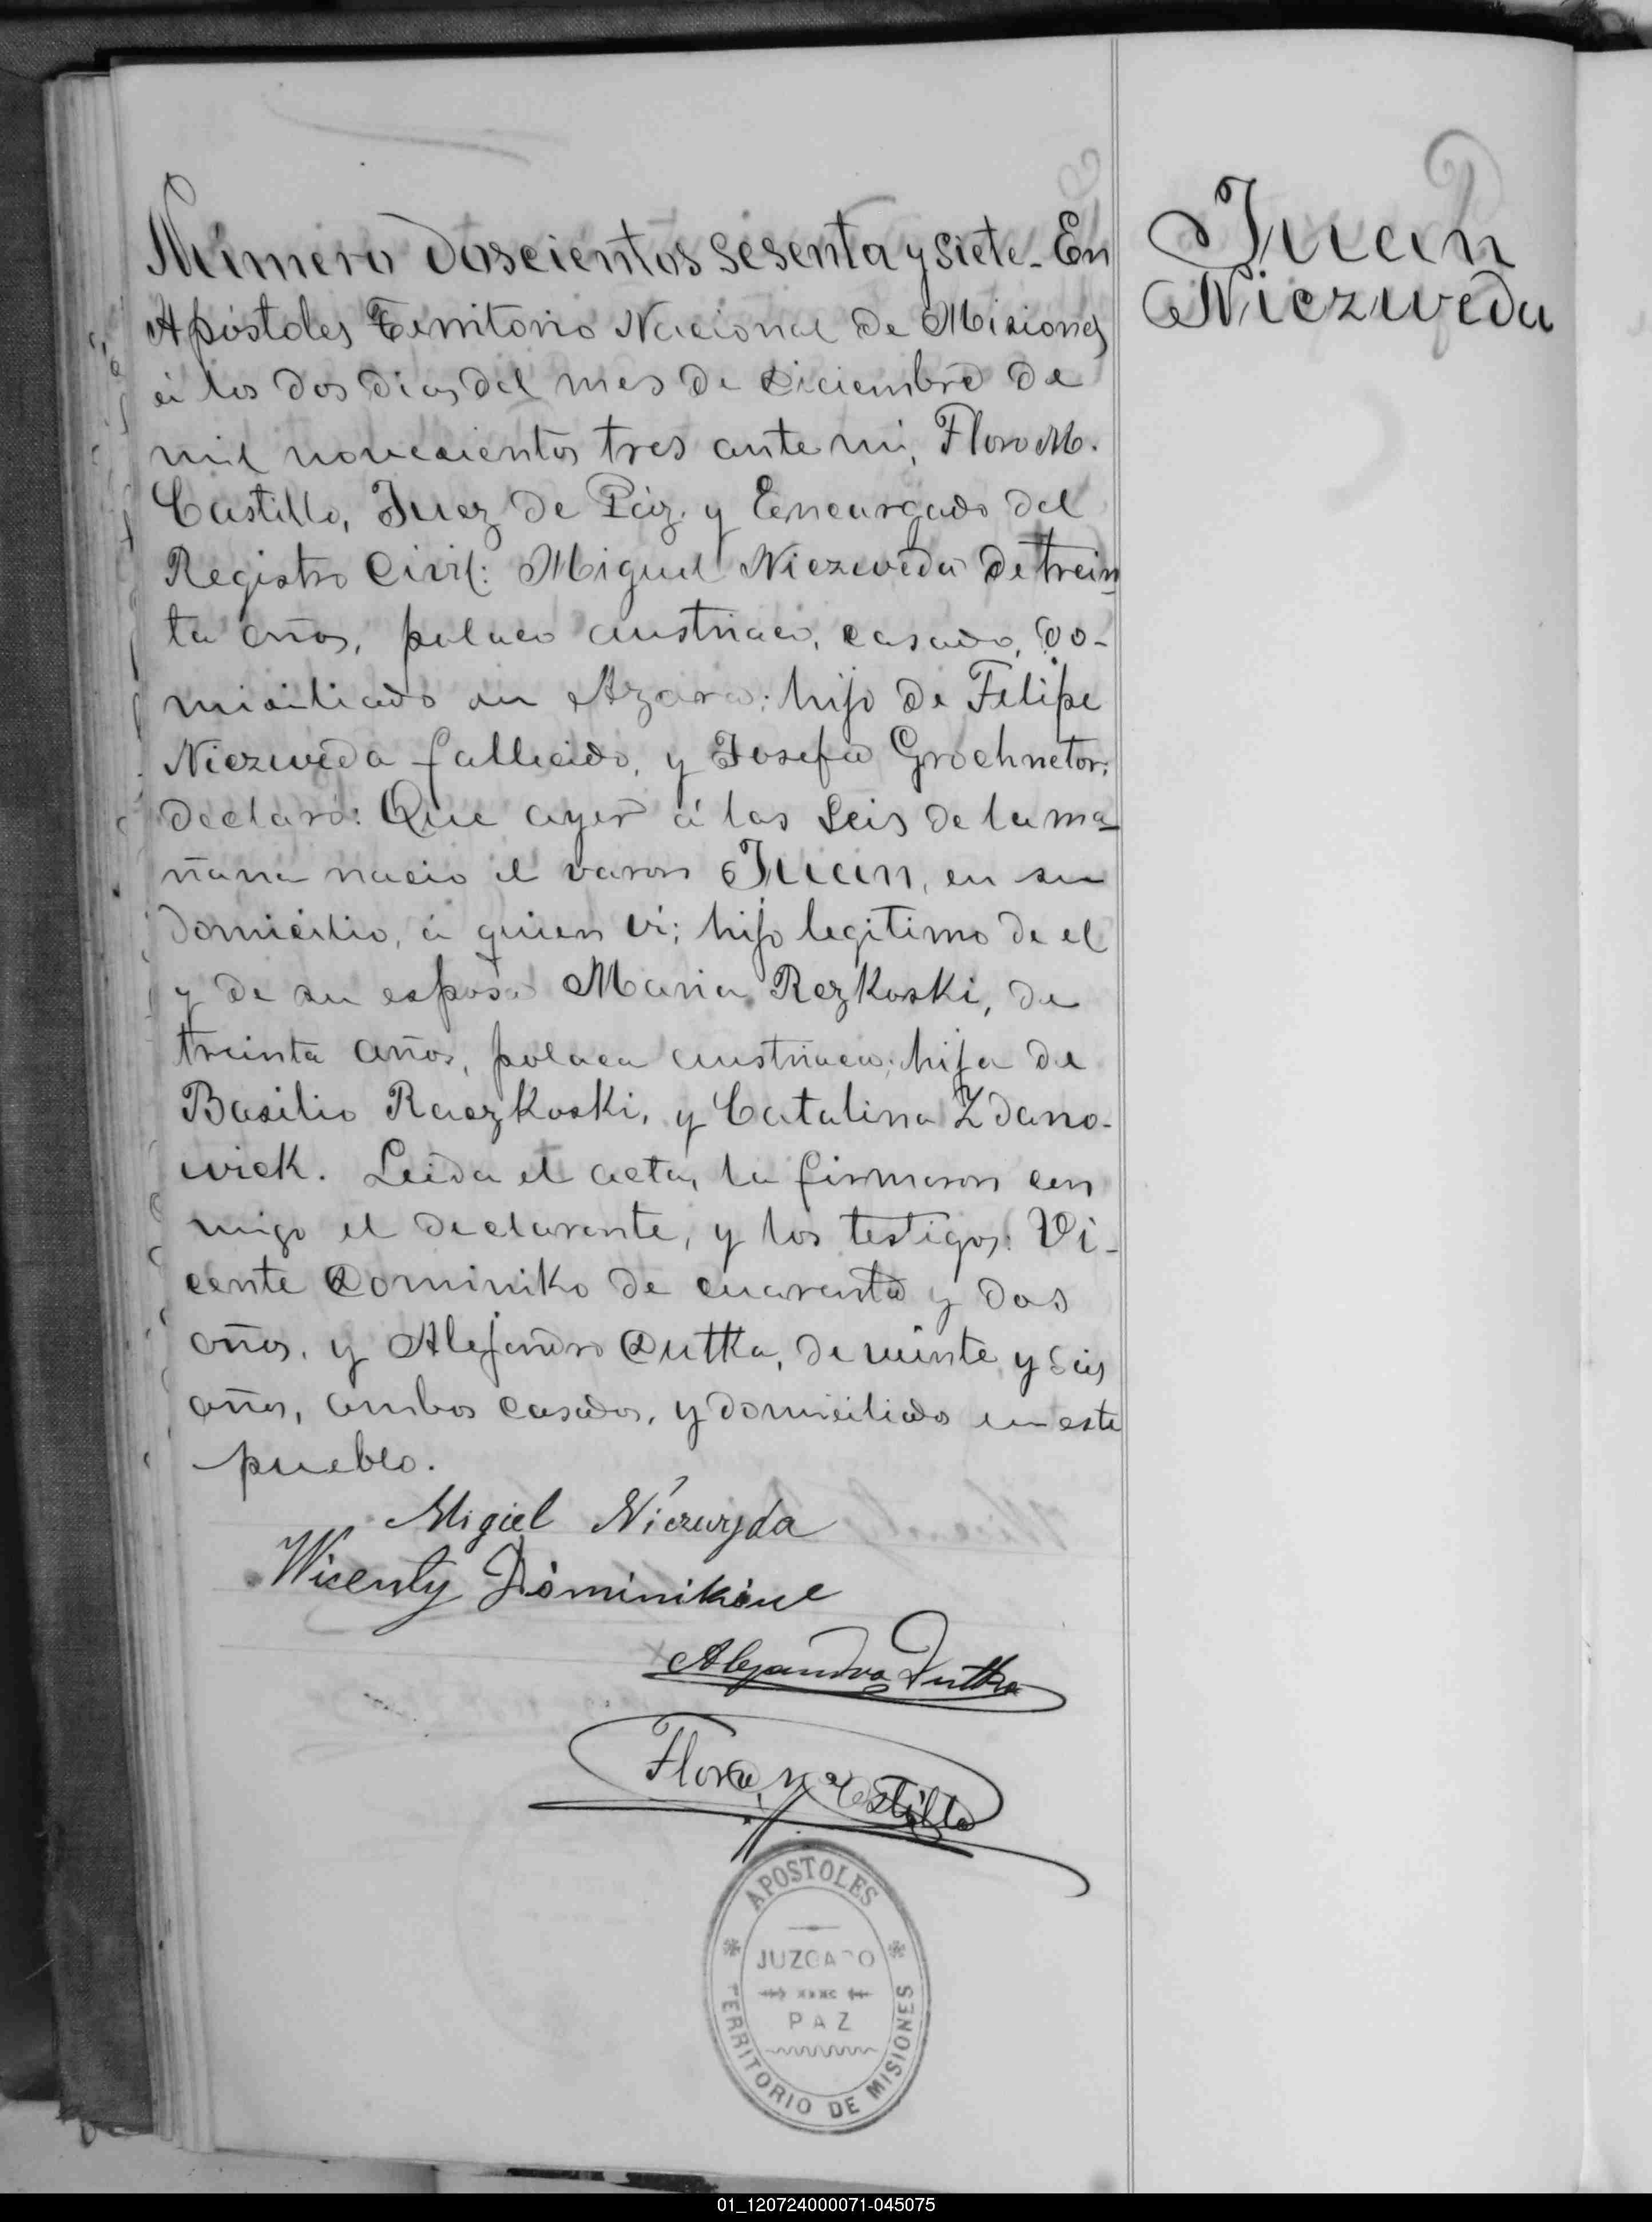 Número doscientos sesenta y siete_ En
Apóstoles Territorio Nacional de Misiones
á los dos dias del mes de Diciembre de
mil novecientos tres ante mi, Floro M.
Castillo, Juez de Páz y Encargado del
Registro Civil: Miguel Niezweda de trein_
ta años, polaco austriaco, casado, do-
miciliado en Azara; hijo de Felipe
Niezweda fallecido, y Josefa Grochnetor;
declaró: Que ayer á las seis de la ma_
ñana nació el varon Juan, en su
domicilio, á quien ví; hijo legitimo de el
y de su esposa Maria Rezkoski, de
treinta años, polaca austriaca; hija de
Basilio Raezkoski, y Catalina Zdano-
wick. Leida el acta, la firmaron con
migo el declarante, y los testigos: Vi-
cente Dominiko de cuarenta y dos
años, y Alejandro Dutka, de veinte y seis
años, ambos casados, y domiciliados en este
pueblo.
Migiel Niezwyda
Wicenty
Alejandro Dutka
Floro M Castillo
APOSTOLES
JUZGADO
PAZ
TERRITORIO DE MISIONES
Juan
Niezweda
01_120724000071-045075